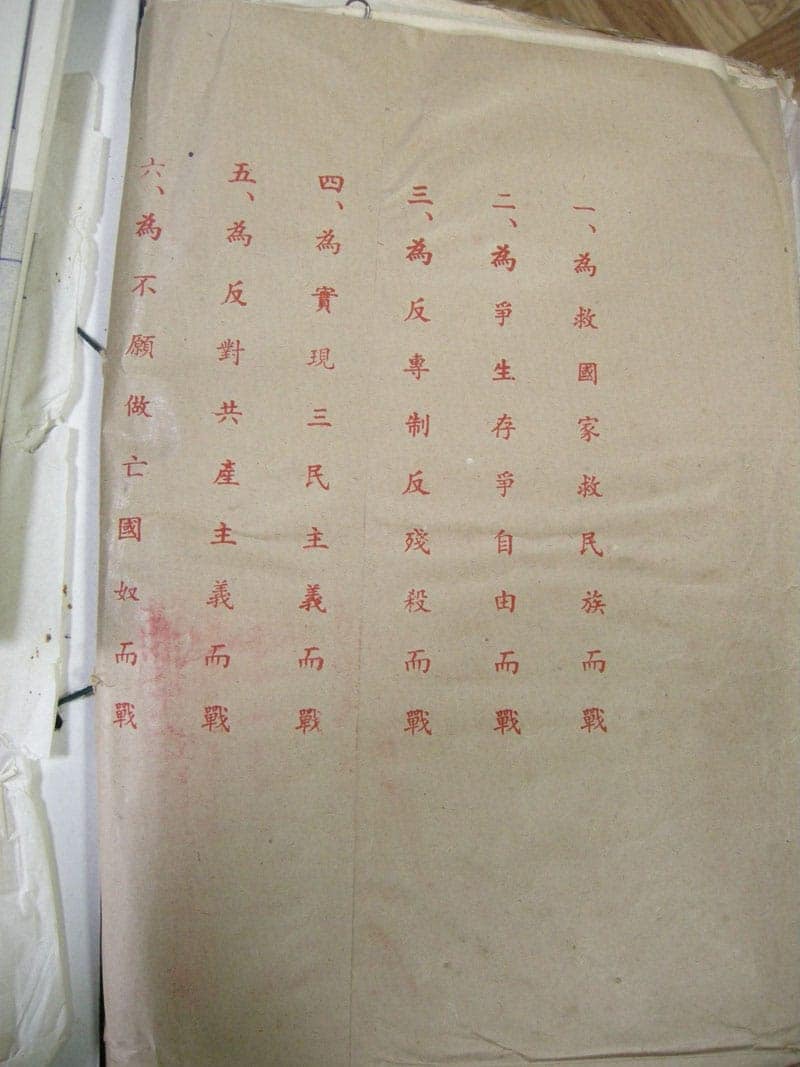 一、為救國家救民族而戰
二、為爭生存爭自由而戰
三、為反專制反殘殺而戰
四、為實現三民主義而戰
五、為反對共產主義而戰
六、為不願做亡國奴而戰